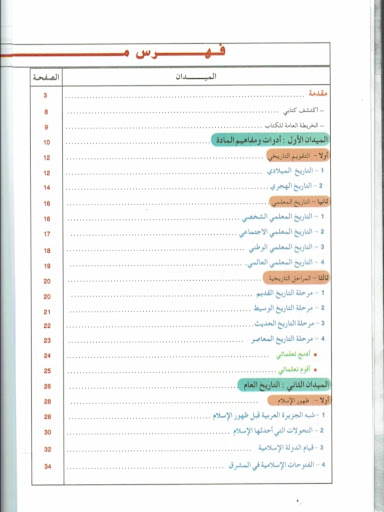 فهرس مـ
الميدان الصفحة
مقدمة 3
– اكتشف كتابي 8
– الخريطة العامة للكتاب 9
الميدان الأول : أدوات ومفاهيم المادة 10
أولا – التقويم التاريخي 12
1 – التاريخ الميلادي 12
2 – التاريخ الهجري 14
ثانيا – التاريخ المعلمي 16
1 – التاريخ المعلمي الشخصي 16
2 – التاريخ المعلمي الاجتماعي 17
3 – التاريخ المعلمي الوطني 18
4 – التاريخ المعلمي العالمي 19
ثالثا – المراحل التاريخية 20
1 – مرحلة التاريخ القديم 20
2 – مرحلة التاريخ الوسيط 21
3 – مرحلة التاريخ الحديث 22
4 – مرحلة التاريخ المعاصر 23
• أدمج تعلماتي 24
• أقوم تعلماتي 25
الميدان الثاني : التاريخ العام 26
أولا – ظهور الإسلام 28
1 – شبه الجزيرة العربية قبل ظهور الإسلام 28
2 – التحولات التي أحدثها الإسلام 30
3 – قيام الدولة الإسلامية 32
4 – الفتوحات الإسلامية في المشرق 34